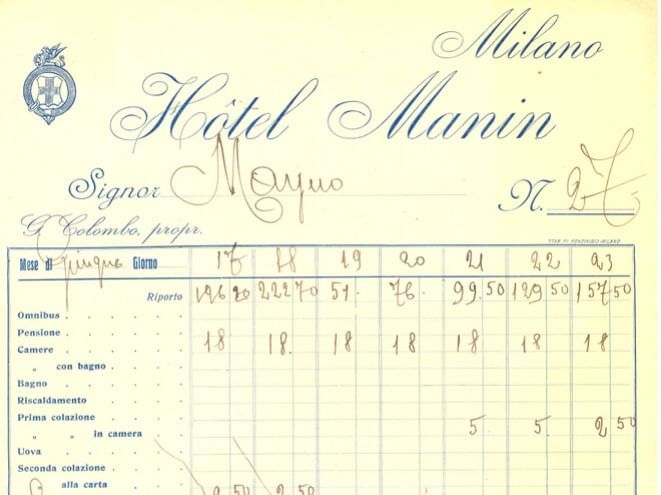 Milano
Hôtel Manin
Signor Mayno N. 27
G. Colombo, propr.
Mese di Giugno Giorno 17 18 19 20 21 22 23
Riporto 126 20 222 70 51. 76. 99.50 129 50 157 50
Omnibus
Pensione
Camere 18 18. 18 18 18 18 18
„ con bagno
Bagno
Riscaldamento
Prima colazione 5 5. 2 50
„ „ in camera
Uova
Seconda colazione
alla carta 2 50 2 50